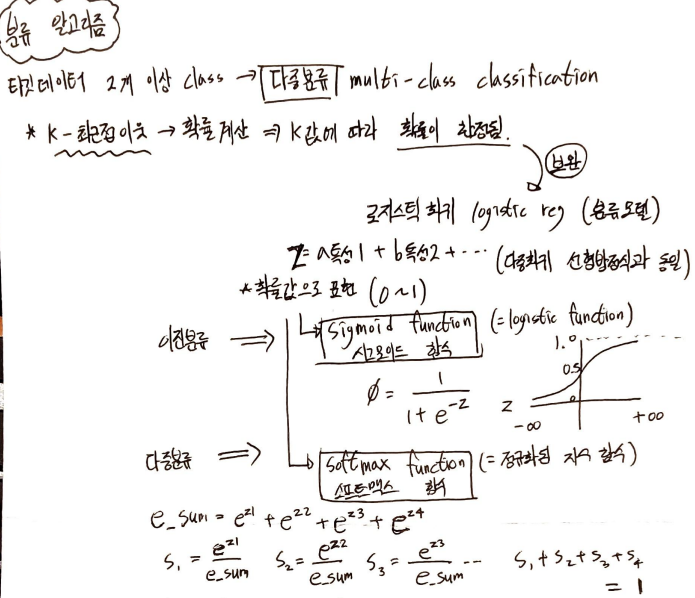 분류 알고리즘
타깃데이터 2개 이상 class → 다중분류 multi-class classification
* K-최근접이웃 → 확률계산 ⇒ K값에 따라 확률이 한정됨.
보완
로지스틱 회귀 logistic reg (분류모델)
z = a특성1 + b특성2 + ··· (다중회귀 선형방정식과 동일)
* 확률값으로 표현 (0~1)
이진분류 ⇒ sigmoid function (= logistic function)
시그모이드 함수
1.0
0.5
0
ø = 1 / (1 + e^-z)
z
-∞ +∞
다중분류 ⇒ softmax function (= 정규화된 지수 함수)
소프트맥스 함수
e_sum = e^z1 + e^z2 + e^z3 + e^z4
s₁ = e^z1 / e_sum s₂ = e^z2 / e_sum s₃ = e^z3 / e_sum ··· s₁ + s₂ + s₃ + s₄
= 1